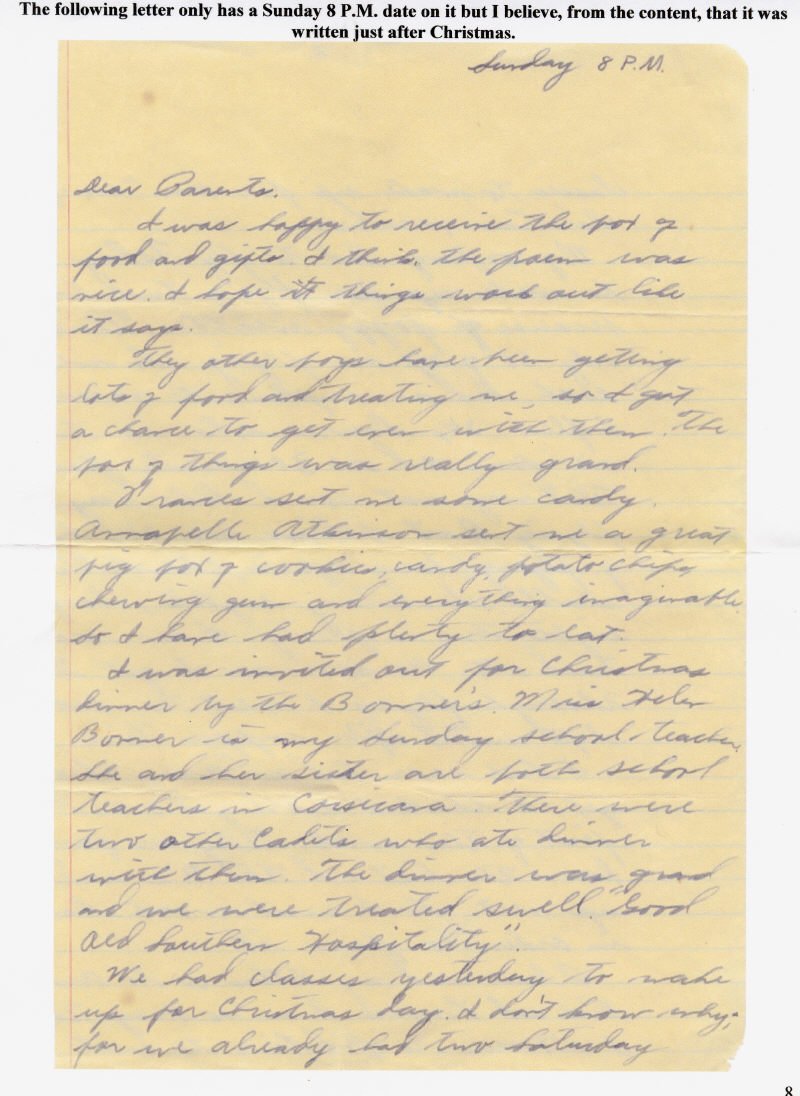 The following letter only has a Sunday 8 P.M. date on it but I believe, from the content, that it was
written just after Christmas.
Sunday 8 P.M.
Dear Parents.
I was happy to receive the box of
food and gifts. I think the poem was
nice. I hope if things work out like
it says.
They other boys have been getting
lots of food and treating me, so I got
a chance to get even with them. The
box of things was really grand.
Frances sent me some candy.
Annabelle Atkinson sent me a great
big box of cookies, candy, potato chips,
chewing gum and everything imaginable.
So I have had plenty to eat.
I was invited out for Christmas
dinner by the Bonner's. Miss Helen
Bonner is my Sunday school teacher.
She and her sister are both school
teachers in Corsicana. There were
two other Cadets who ate dinner
with them. The dinner was grand
and we were treated swell. "Good
Old Southern Hospitality".
We had classes yesterday to make
up for Christmas day. I don't know why,
for we already had two Saturday
8